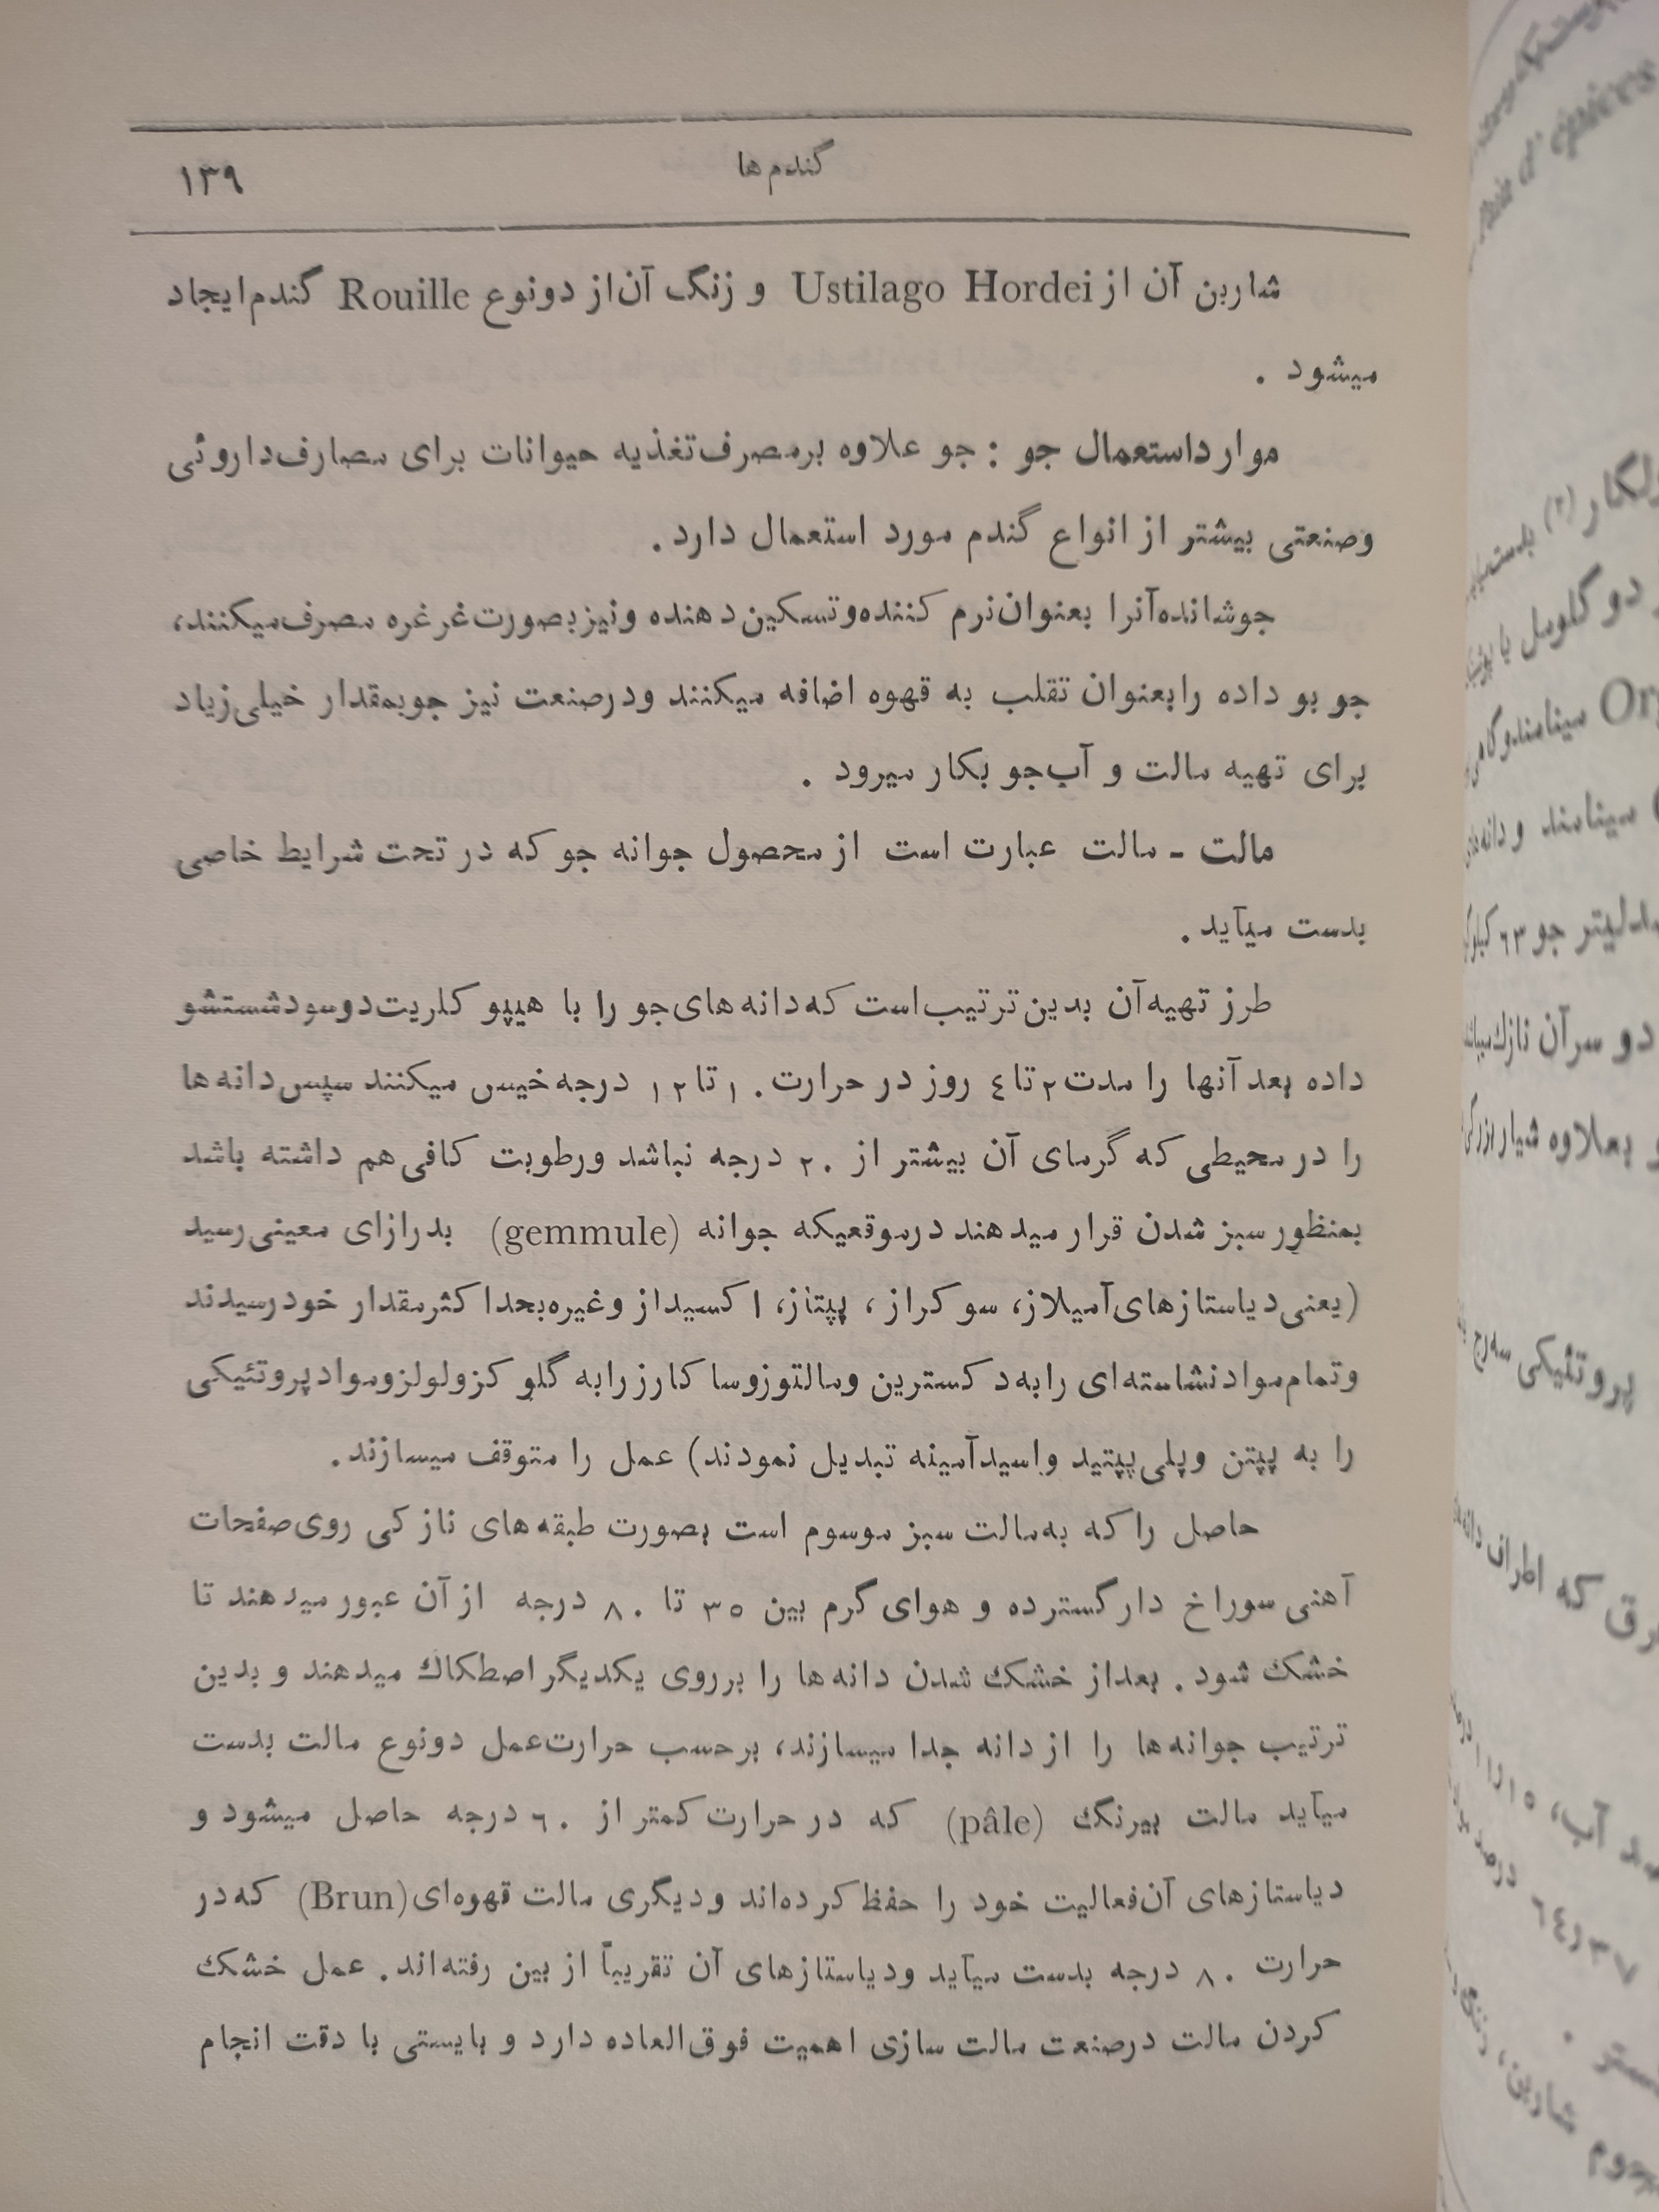 گندم ها
۱۳۹
شاربن آن از Ustilago Hordei و زنگ آن از دو نوع Rouille گندم ایجاد
میشود .
موارد استعمال جو : جو علاوه بر مصرف تغذیه حیوانات برای مصارف داروئی
وصنعتی بیشتر از انواع گندم مورد استعمال دارد .
جوشانده آنرا بعنوان نرم کننده و تسکین دهنده و نیز بصورت غرغره مصرف میکنند،
جو بو داده را بعنوان تقلب به قهوه اضافه میکنند ودرصنعت نیز جو بمقدار خیلی زیاد
برای تهیه مالت و آب جو بکار میرود .
مالت - مالت عبارت است از محصول جوانه جو که در تحت شرایط خاصی
بدست میآید .
طرز تهیه آن بدین ترتیب است که دانه های جو را با هیپو کلریت دو سود شستشو
داده بعد آنها را مدت ۲ تا ٤ روز در حرارت ۱۰ تا ۱۲ درجه خیس میکنند سپس دانه ها
را در محیطی که گرمای آن بیشتر از ۲۰ درجه نباشد ورطوبت کافی هم داشته باشد
بمنظور سبز شدن قرار میدهند درموقعیکه جوانه (gemmule) بدرازای معینی رسید
(یعنی دیاستازهای آمیلاز، سوکراز ، پپتاز، اکسیداز وغیره بحداکثر مقدار خود رسیدند
وتمام مواد نشاسته‌ای را به دکسترین ومالتوز وساکارز را به گلوکز ولولز ومواد پروتئیکی
را به پپتن وپلی پپتید واسید آمینه تبدیل نمودند) عمل را متوقف میسازند .
حاصل را که به مالت سبز موسوم است بصورت طبقه های نازکی روی صفحات
آهنی سوراخ دار گسترده و هوای گرم بین ۳۵ تا ۸۰ درجه از آن عبور میدهند تا
خشک شود . بعد از خشک شدن دانه ها را برروی یکدیگر اصطکاك میدهند و بدین
ترتیب جوانه ها را از دانه جدا میسازند، برحسب حرارت عمل دونوع مالت بدست
میآید مالت بیرنگ (pâle) که در حرارت کمتر از ٦۰ درجه حاصل میشود و
دیاستازهای آن فعالیت خود را حفظ کرده‌اند و دیگری مالت قهوه‌ای (Brun) که در
حرارت ۸۰ درجه بدست میآید ودیاستازهای آن تقریباً از بین رفته‌اند . عمل خشک
کردن مالت درصنعت مالت سازی اهمیت فوق العاده دارد و بایستی با دقت انجام